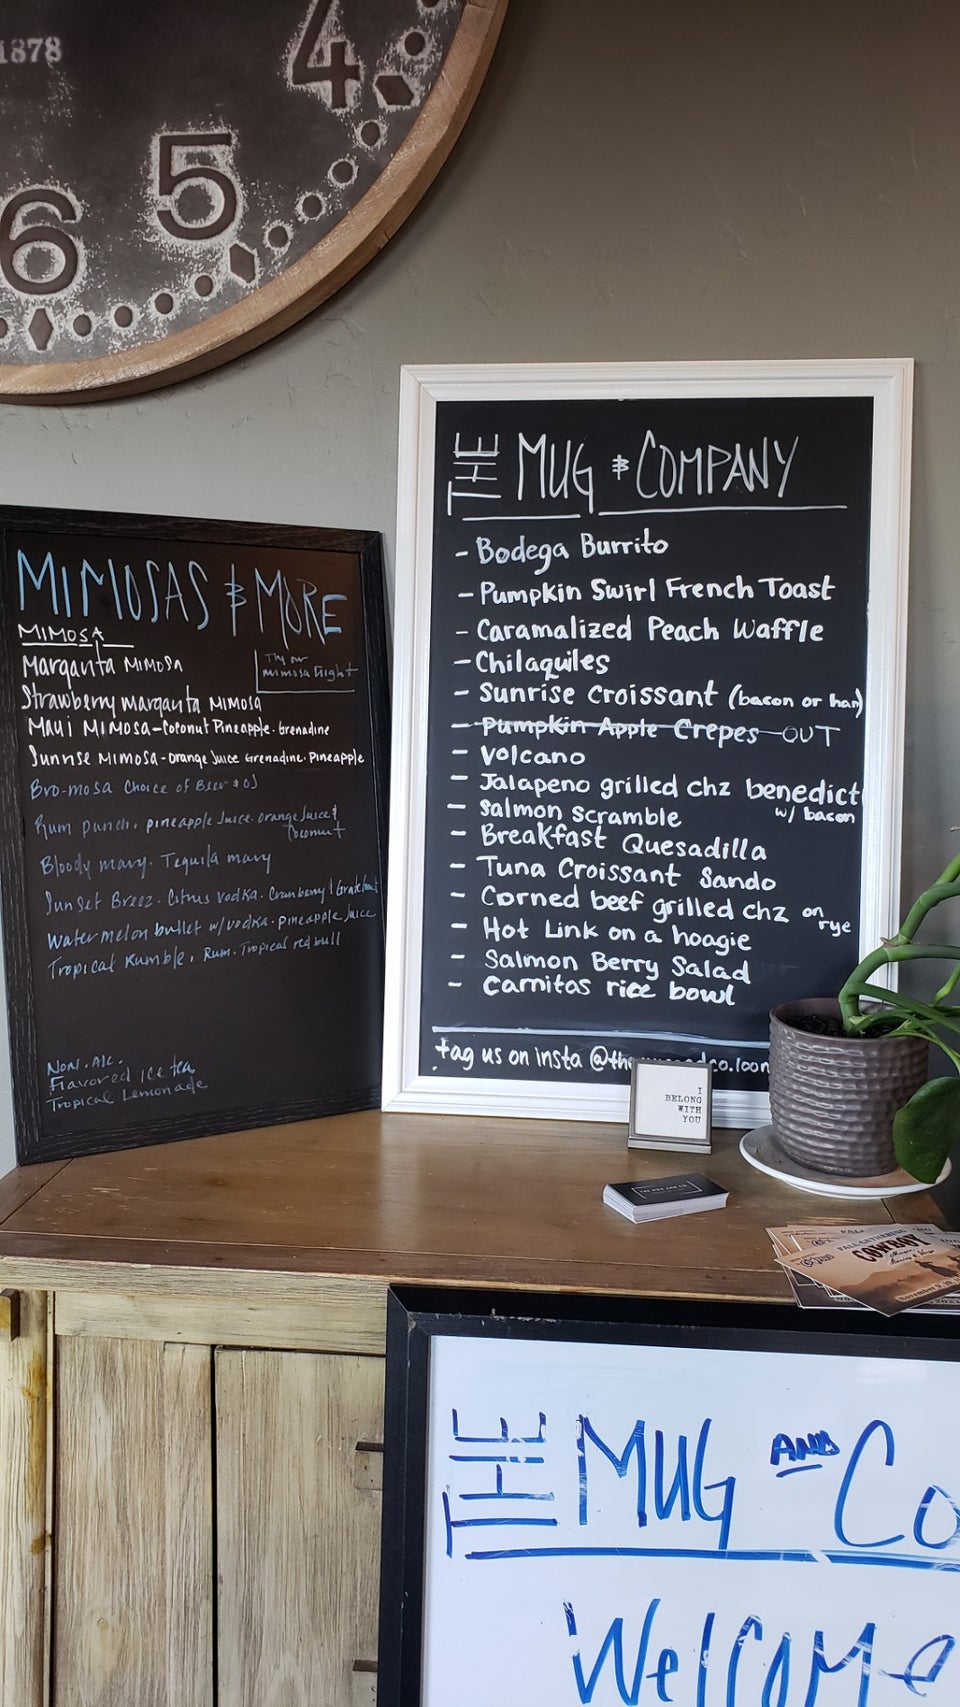 1878
4
5
6
MIMOSAS & MORE
MIMOSA
Try our
mimosa flight
Margarita MIMOSA
Strawberry margarita MIMOSA
Maui MIMOSA-Coconut Pineapple. Grenadine
Sunrise MIMOSA-orange Juice Grenadine. Pineapple
Bro-mosa Choice of Beer & OJ
Rum punch. pineapple Juice. orange Juice &
Coconut
Bloody mary. Tequila mary
Sunset Breez. Citrus vodka. Cranberry &
Watermelon bullet w/vodka. pineapple Juice
Tropical Rumble. Rum. Tropical red bull
Non. Alc.
Flavored Ice tea
Tropical Lemonade
THE MUG & COMPANY
- Bodega Burrito
- Pumpkin Swirl French Toast
- Caramalized Peach Waffle
- Chilaquiles
- Sunrise Croissant (bacon or ham)
- Pumpkin Apple Crepes OUT
- Volcano
- Jalapeno grilled chz benedict
w/ bacon
- Salmon scramble
- Breakfast Quesadilla
- Tuna Croissant Sando
- Corned beef grilled chz on
rye
- Hot Link on a hoagie
- Salmon Berry Salad
- Carnitas rice bowl
tag us on insta
I
BELONG
WITH
YOU
COWBOY
THE MUG AND CO
Welcome